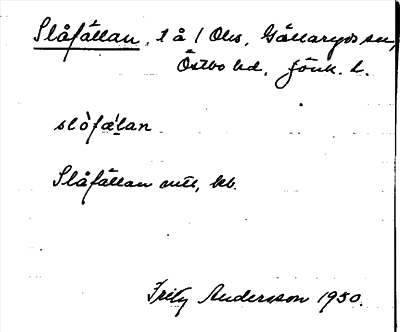 Slåfållan, t å 1 Ols, Gällaryds sn,
Östbo hd, Jönk. L.
slòfälan
Slåfållan
Fritz Andersson 1950.